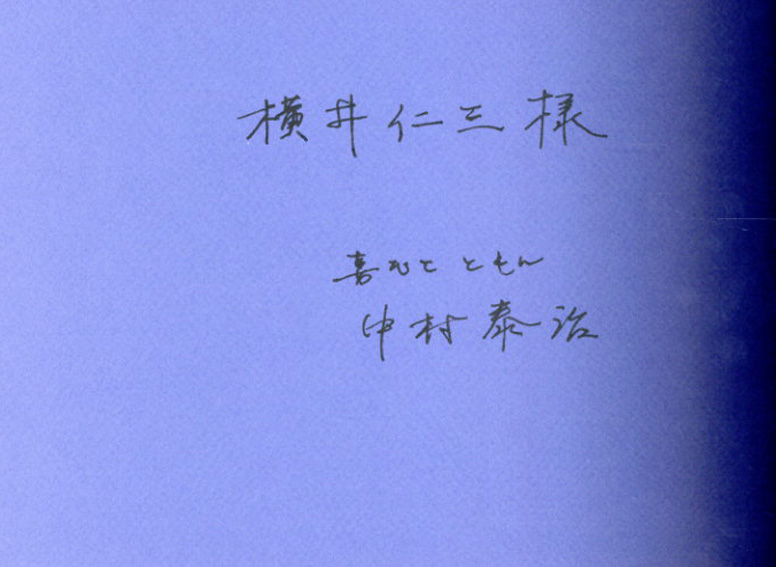 横井仁三様
喜びと ともに
中村泰治